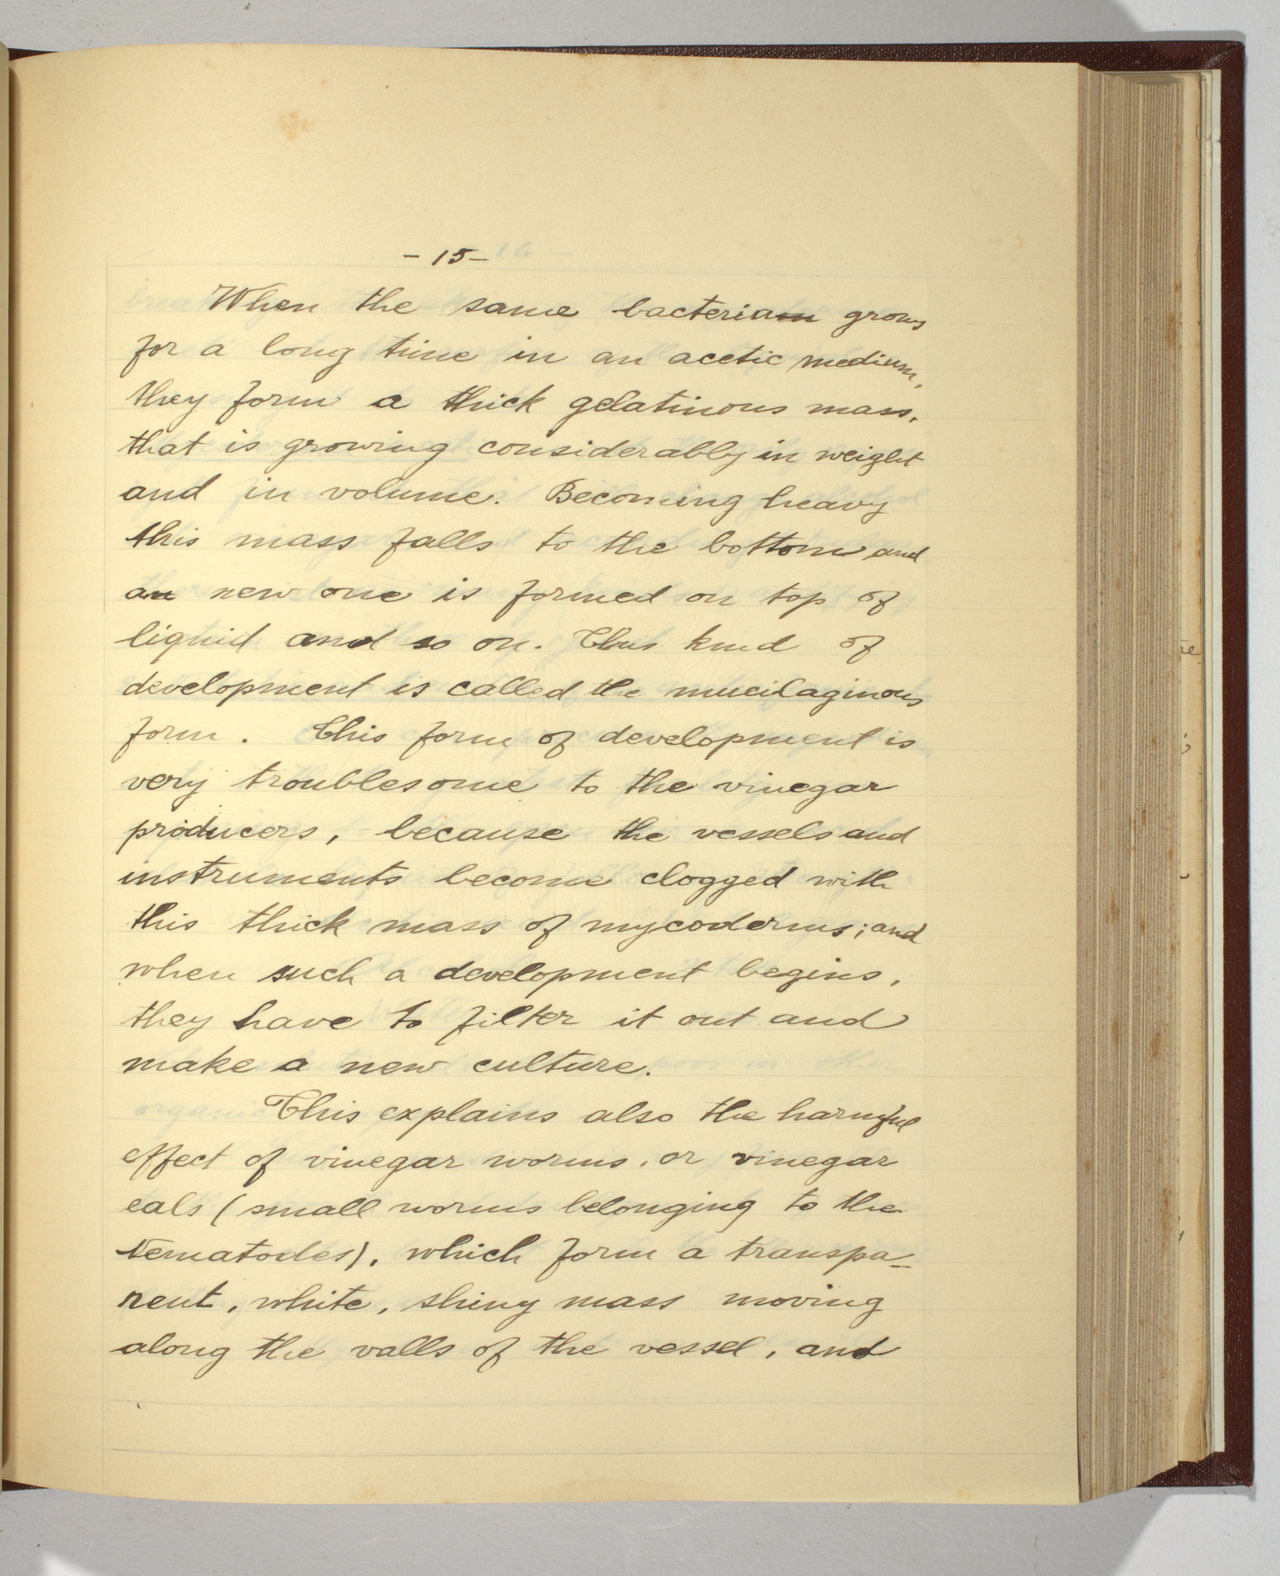 - 15 -
When the same bacteria grows
for a long time in an acetic medium,
they form a thick gelatinous mass,
that is growing considerably in weight
and in volume. Becoming heavy
this mass falls to the bottom and
a new one is formed on top of
liquid and so on. This kind of
development is called the mucilaginous
form. This form of development is
very troublesome to the vinegar
producers, because the vessels and
instruments become clogged with
this thick mass of mycoderms; and
when such a development begins,
they have to filter it out and
make a new culture.
This explains also the harmful
effect of vinegar worms, or vinegar
eals (small worms belonging to the
Nematodes), which form a transpa-
rent, white, shiny mass moving
along the valls of the vessel, and